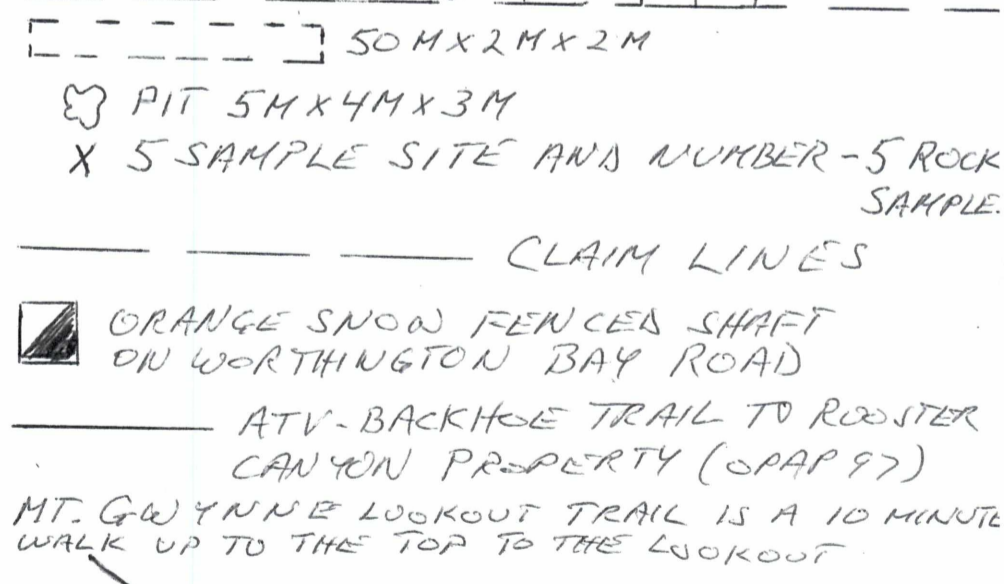 50 M X 2 M X 2 M
PIT 5M X 4M X 3M
X 5 SAMPLE SITE AND NUMBER - 5 ROCK
SAMPLE.
CLAIM LINES
ORANGE SNOW FENCED SHAFT
ON WORTHINGTON BAY ROAD
ATV - BACKHOE TRAIL TO ROOSTER
CANYON PROPERTY (OPAP 97)
MT. GWYNNE LOOKOUT TRAIL IS A 10 MINUTE
WALK UP TO THE TOP TO THE LOOKOUT